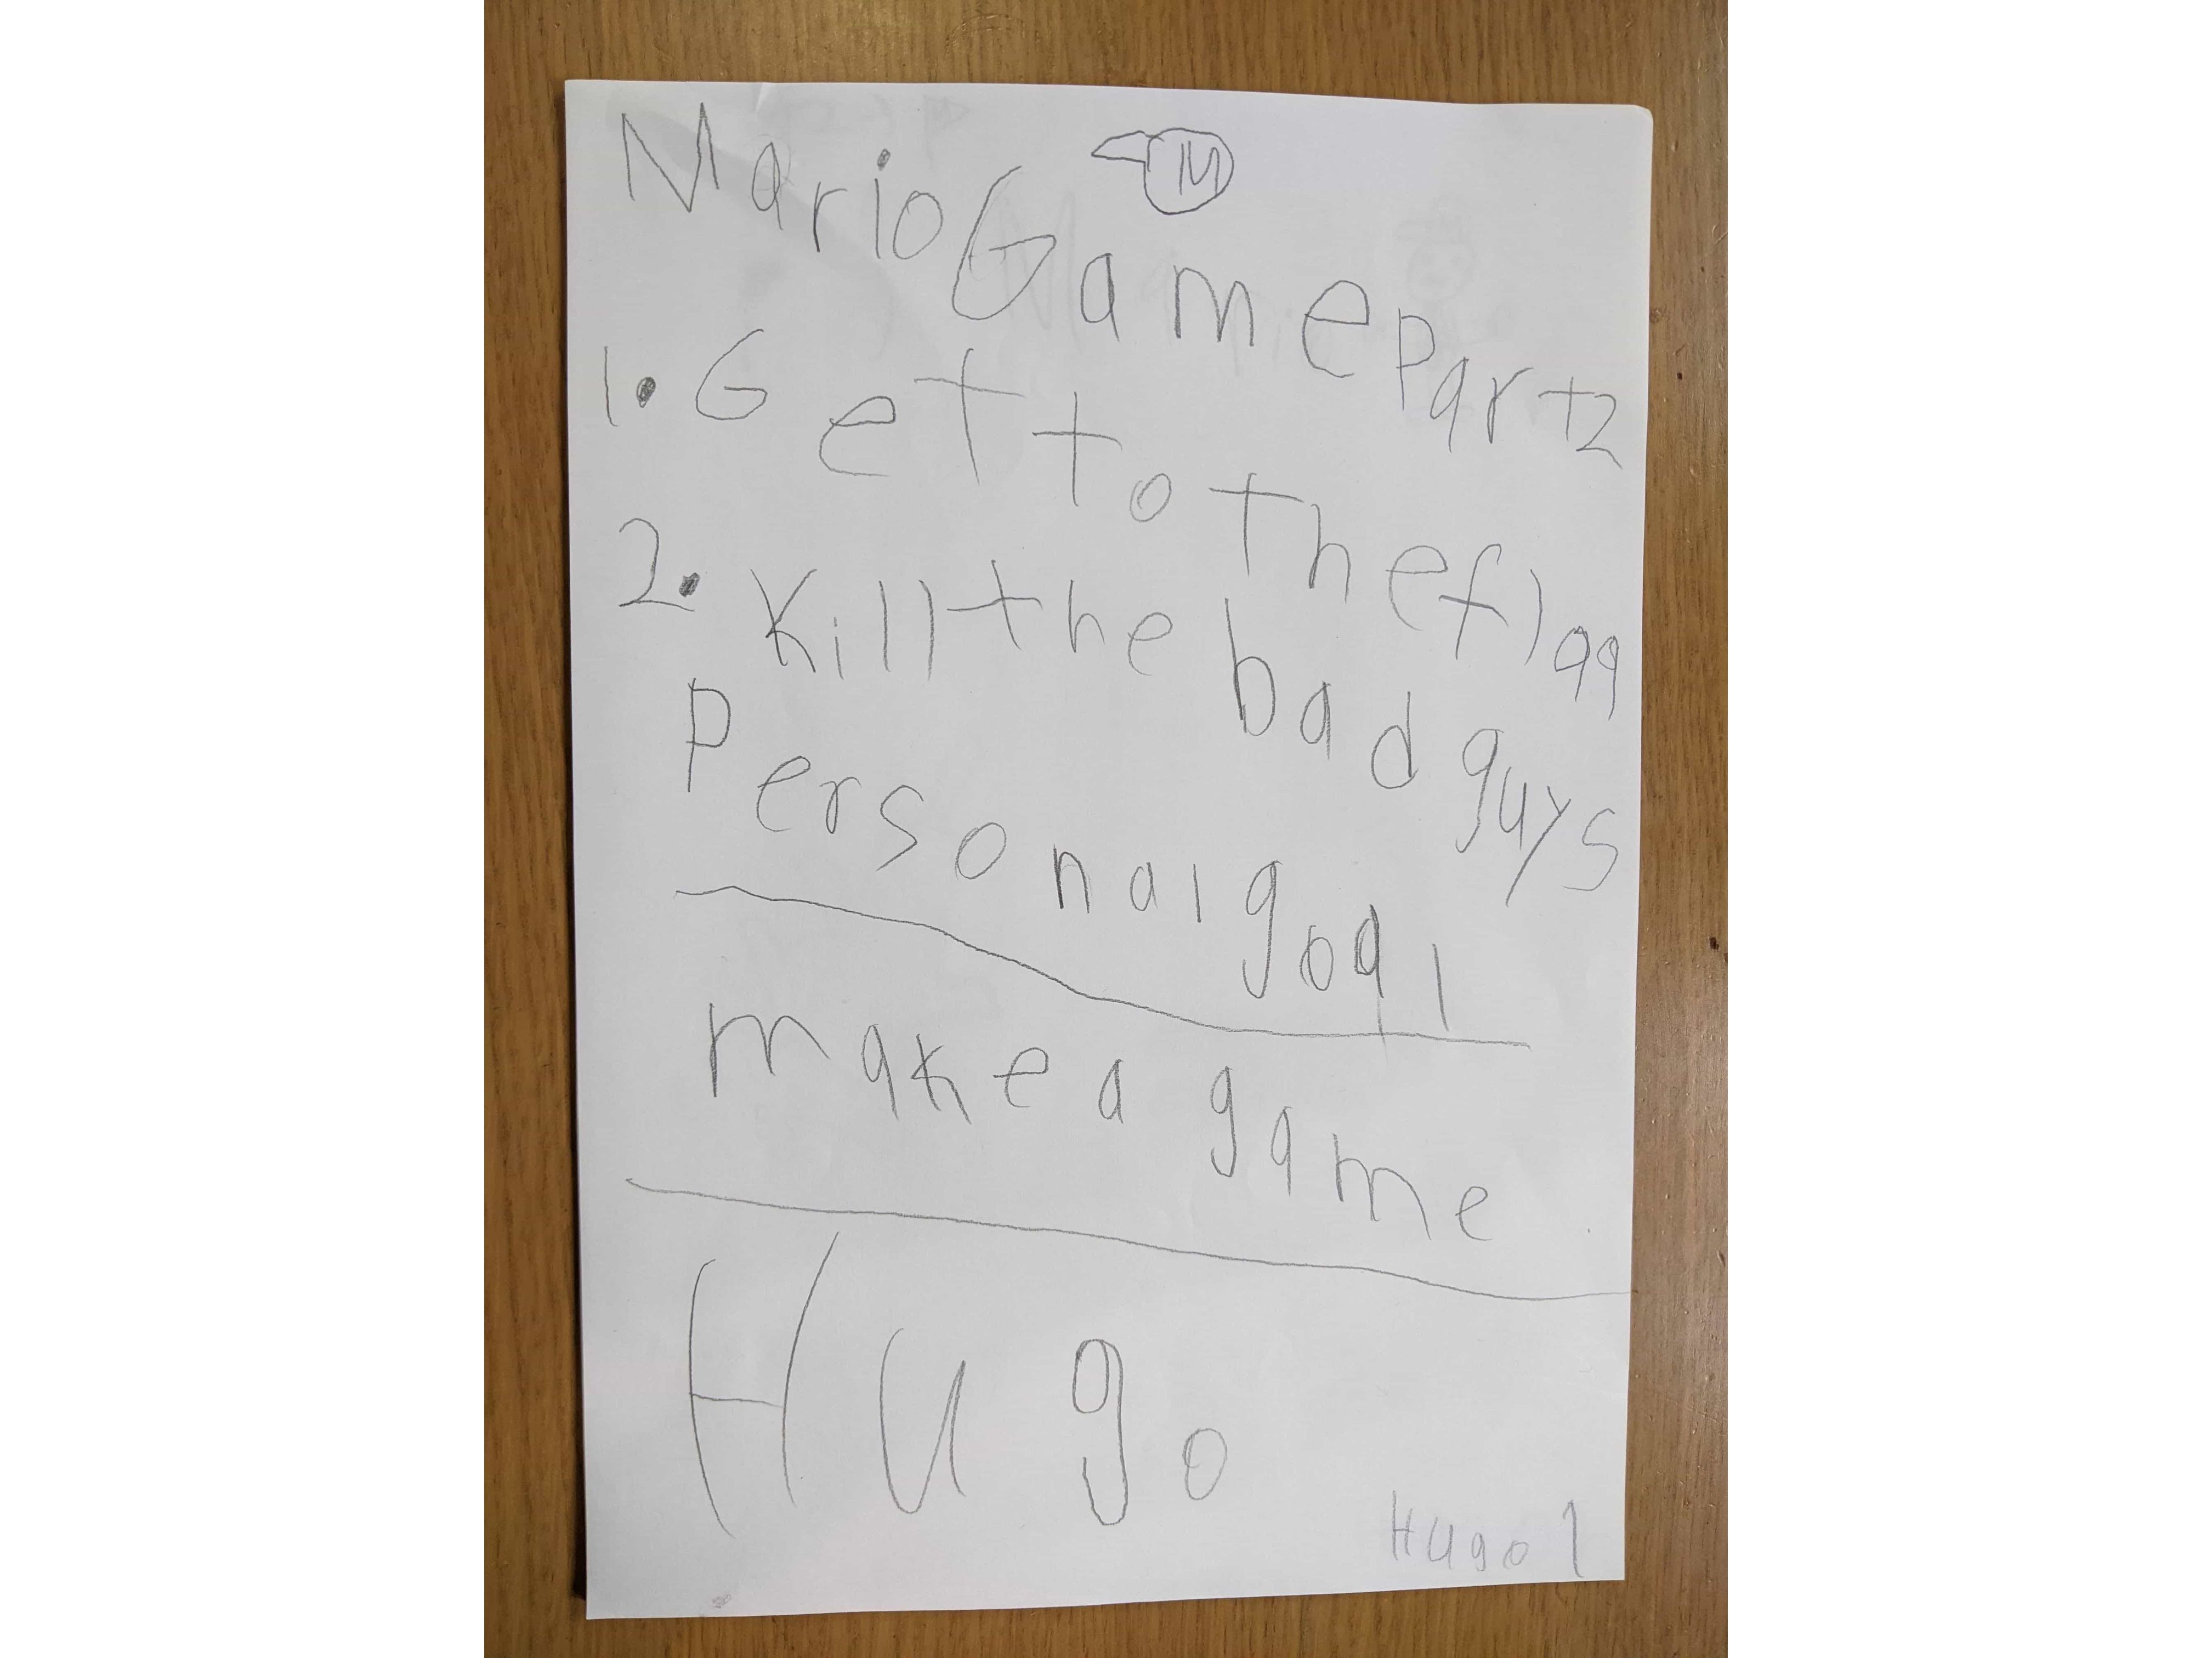 Mario Game Part2
M
1. Get to the flag
2. Kill the bad guys
Personal goal
make a game
Hugo
Hugo 1